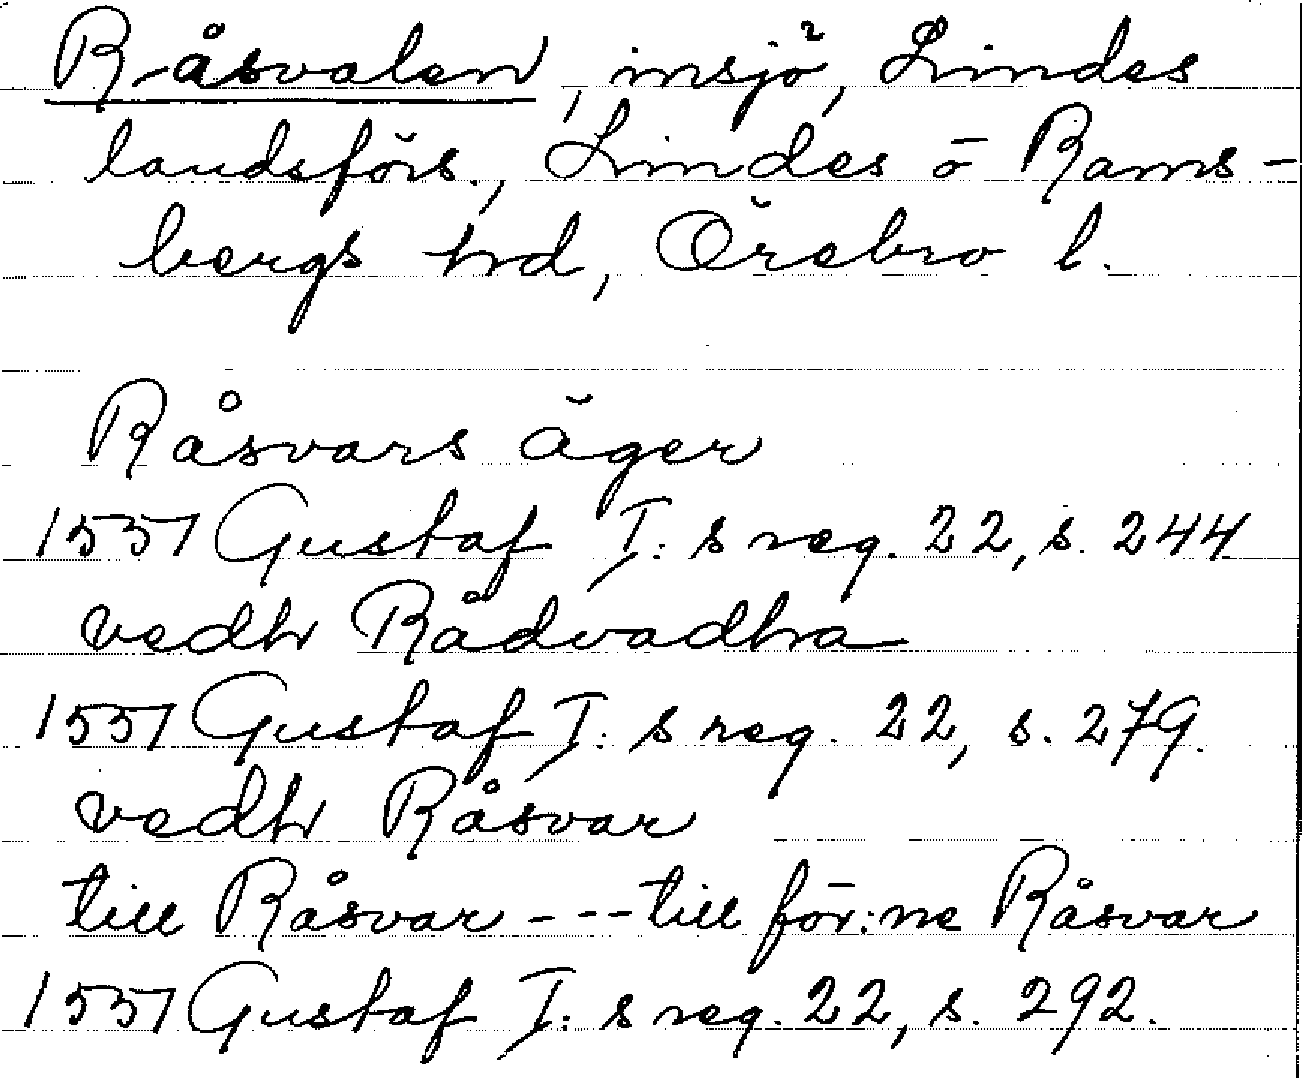 Råsvalen, insjö, Lindes
landsförs., Lindes o Rams-
bergs hd, Örebro l.
Råsvars äger
1551 Gustaf I:s reg. 22, s. 244
vedh Rådvadha
1551 Gustaf I:s reg. 22, s. 279.
vedh Råsvar
till Råsvar - - - till för:ne Råsvar
1551 Gustaf I:s reg. 22, s. 292.